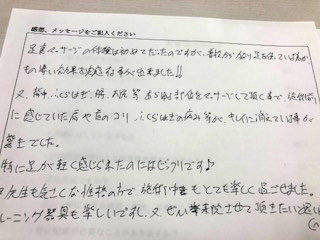 感想、メッセージをご記入ください
足裏マッサージの体験は初めてだったのですが、普段から
もの凄い効果を実感する事が出来ました!!
又、背中、ふくらはぎ、腕、太もも等あらゆる部位をマッサージして頂く事で、施術前
に感じていた肩や首のコリ、ふくらはぎの痛み等が、キレイに消えている事が
驚きでした。
特に足が軽く感じられたのにはビックリです♪
先生も気さくな性格の方で施術中もとても楽しく過ごせました。
レーニング器具も楽しいですし、又ぜひ来院させて頂きたいと思い